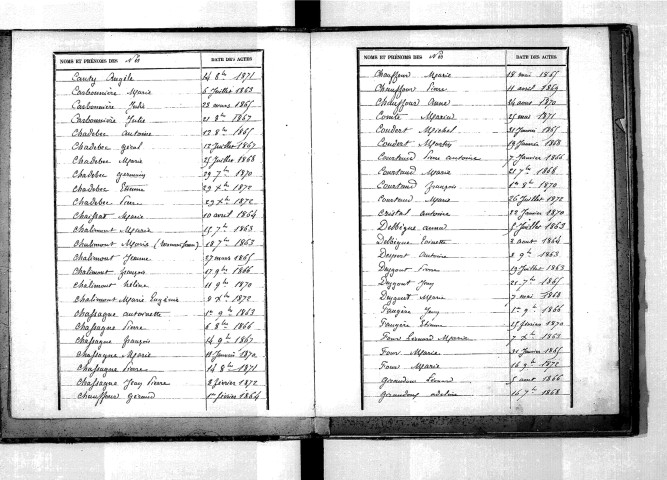 NOMS ET PRÉNOMS DES Nés DATE DES ACTES
Angèle 14 8bre 1871
Carbonnière Marie 6 Juillet 1863
Carbonnière Julie 28 mars 1865
Carbonnière Julie 21 8bre 1867
Chadebec Antoine 12 8bre 1865
Chadebec géral 12 Juillet 1867
Chadebec Marie 25 Juillet 1868
Chadebec germain 29 7bre 1870
Chadebec Etienne 29 Xbre 1872
Chadebec Pierre 29 Xbre 1872
Marie 10 avril 1864
Chalimont Marie 15 7bre 1863
Chalimont Maria 18 7bre 1863
Chalimont Jeanne 27 mars 1865
Chalimont françois 17 9bre 1866
Chalimont hélène 11 9bre 1870
Chalimont Marie Eugénie 8 Xbre 1872
Chassagne Antoinette 1er 9bre 1863
Chassagne Pierre 6 8bre 1866
Chassagne françois 14 9bre 1867
Chassagne Marie 18 Janvier 1870
Chassagne Pierre 14 8bre 1871
Chassagne Jean Pierre 8 février 1872
Chauffour géraud 1er février 1864
NOMS ET PRÉNOMS DES Nés DATE DES ACTES
Chauffour Marie 18 mai 1865
Chauffour Pierre 11 avril 1869
Chauffour Anne 24 aout 1870
Comte Maria 25 mai 1871
Coudert Michel 31 Janvier 1865
Coudert Martin 19 Janvier 1868
Courtaud Pierre Antoine 7 Janvier 1866
Courtaud Marie 21 7bre 1868
Courtaud françois 1er 8bre 1870
Courtaud Marie 26 Juillet 1872
Cristal Antoine 22 Janvier 1870
Delbègue anna 5 Juillet 1863
Delbègue Toinette 2 aout 1864
Despert Antoine 2 9bre 1863
Duzgout Pierre 19 Juillet 1863
Duzgout Jean 21 7bre 1865
Marie 7 mai 1868
Faugère Jean 1er 9bre 1866
Faugère Etienne 15 février 1870
Four Léonard Marie 7 Xbre 1862
Four Marie 31 Janvier 1865
Four Marie 16 9bre 1872
Giraudon 5 aout 1866
16 7bre 1868